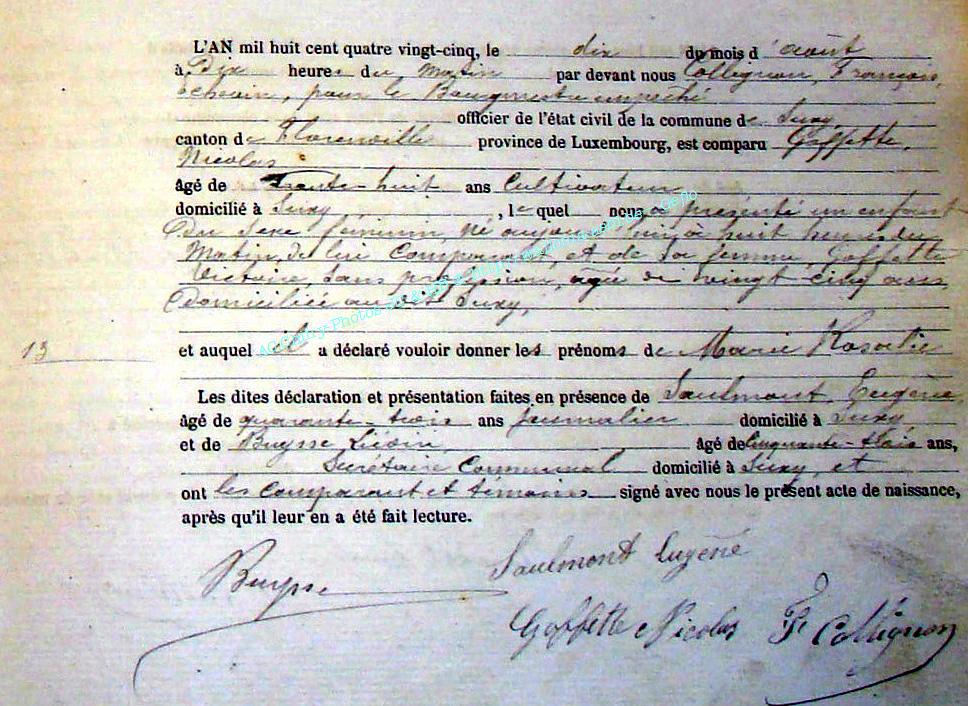 L'AN mil huit cent quatre vingt-cinq, le dix du mois d'août
à Dix heures du Matin par devant nous Collignon, François,
échevin, pour le Bourgmestre empêché
officier de l'état civil de la commune de Suxy,
canton de Florenville province de Luxembourg, est comparu Goffette,
Nicolas
âgé de trente-huit ans Cultivateur
domicilié à Suxy, lequel nous a présenté un enfant
du sexe féminin, né aujourd'hui à huit heures du
Matin, de lui Comparant, et de sa femme, Goffette
Victoire, sans profession, agée de vingt cinq ans,
domiciliée au dit Suxy,
13
et auquel il a déclaré vouloir donner les prénoms de Marie Rosalie
Les dites déclaration et présentation faites en présence de Saulmont, Eugène,
âgé de quarante-trois ans journalier domicilié à Suxy
et de Buysse Liévin, âgé de cinquante-trois ans,
Secrétaire Communal domicilié à Suxy, et
ont les comparant et témoins signé avec nous le présent acte de naissance,
après qu'il leur en a été fait lecture.
Saulmont Eugène
Buysse
Goffette Nicolas F. Collignon